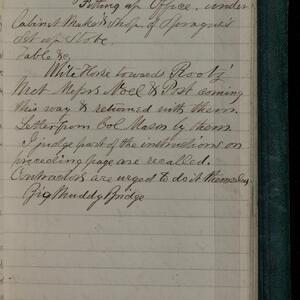 Fitting up Office, under
Cabinet Maker's Shop of Sprague's
Set up Stove.
Table &c.
White Horse toward Roots'
Met Messrs Noel & Post coming
this way & returned with them.
Letter from Col Mason by them
I judge part of the instructions on
preceding page are recalled.
Contractors are urged to do it themselves
Big Muddy Bridge